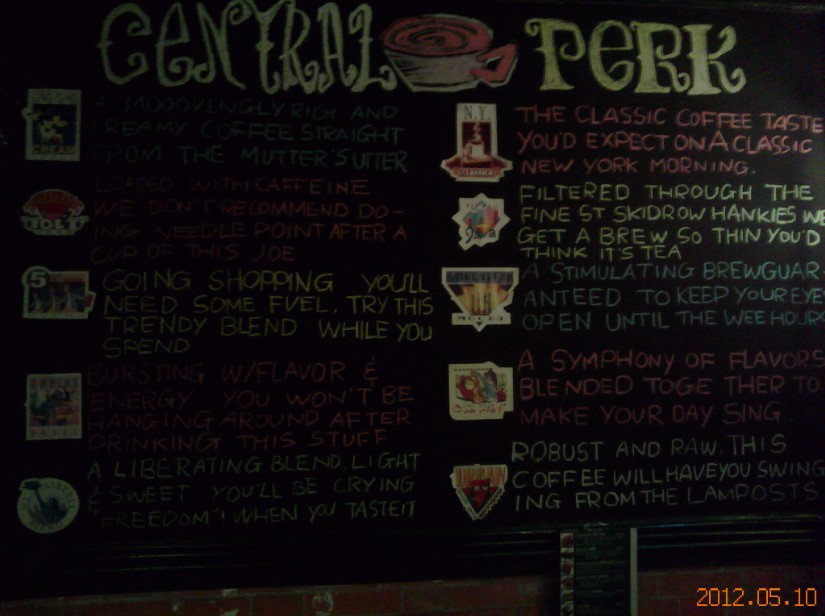 CENTRAL PERK
MOOOVINGLY RICH AND
CREAMY COFFEE STRAIGHT
FROM THE MUTTER'S UTTER
LOADED WITH CAFFEINE
WE DON'T RECOMMEND DO-
ING NEEDLE POINT AFTER A
CUP OF THIS JOE
5
GOING SHOPPING YOU'LL
NEED SOME FUEL. TRY THIS
TRENDY BLEND WHILE YOU
SPEND
BURSTING W/FLAVOR &
ENERGY YOU WON'T BE
HANGING AROUND AFTER
DRINKING THIS STUFF
A LIBERATING BLEND. LIGHT
& SWEET YOU'LL BE CRYING
"FREEDOM"! WHEN YOU TASTE IT
N.Y.
THE CLASSIC COFFEE TASTE
YOU'D EXPECT ON A CLASSIC
NEW YORK MORNING.
FILTERED THROUGH THE
FINEST SKIDROW HANKIES WE
GET A BREW SO THIN YOU'D
THINK IT'S TEA
A STIMULATING BREW GUAR-
ANTEED TO KEEP YOUR EYES
OPEN UNTIL THE WEE HOURS
A SYMPHONY OF FLAVORS
BLENDED TOGETHER TO
MAKE YOUR DAY SING
ROBUST AND RAW. THIS
COFFEE WILL HAVE YOU SWING
ING FROM THE LAMPOSTS
2012.05.10